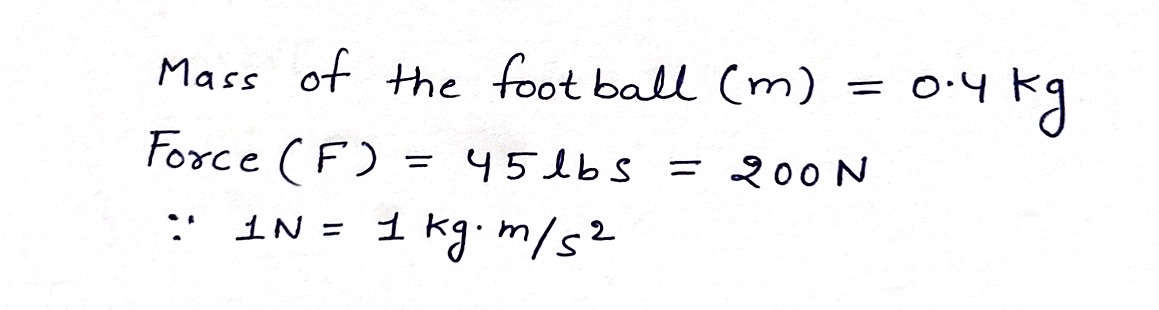 Mass of the football (m) = 0.4 kg
Force (F) = 45 lbs = 200 N
∵ 1N = 1 kg·m/s²